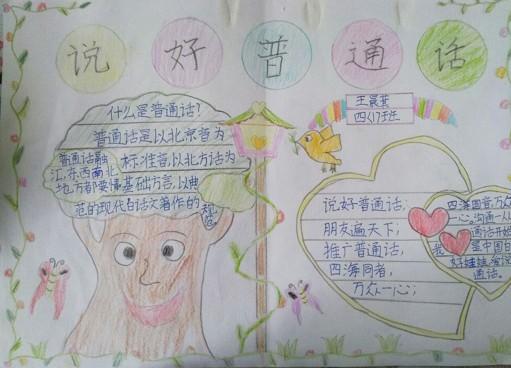 说好普通话
什么是普通话?
普通话是以北京音为
标准音,以北方话为
基础方言,以典
范的现代白话文著作的
普通话融
江、东、西南北,
地方都要懂
王晨
四(17)班
说好普通话,
朋友遍天下;
推广普通话,
四海同音,
万众一心;
四海同音,万众
一心;沟通从
通话开始
我
是中国
好娃娃,爱说
通话。